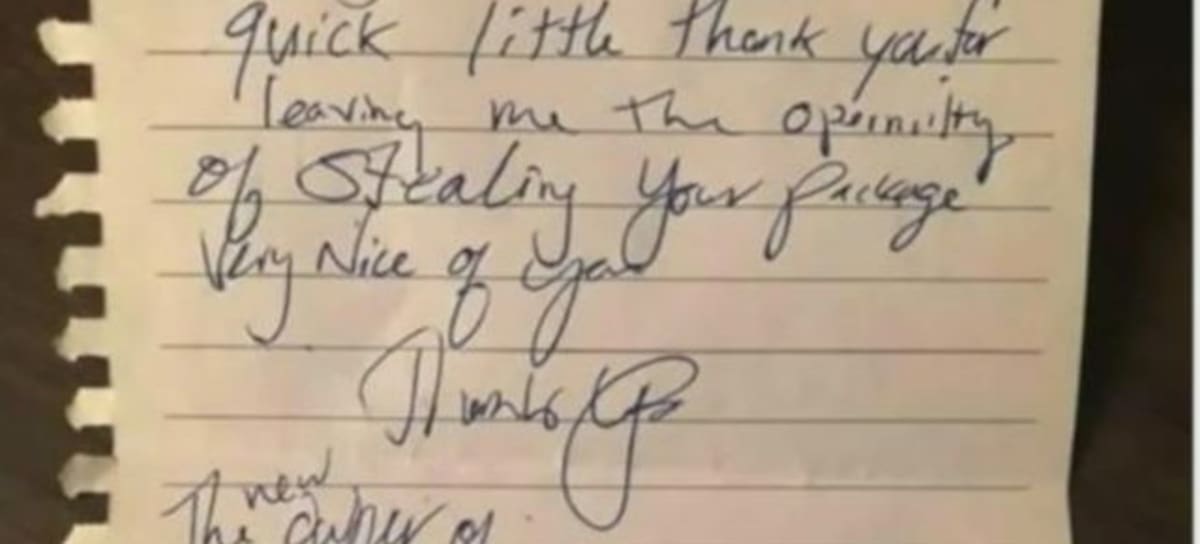 quick little thank you for
leaving me the
of stealing your package
Very Nice of you
Thanks
new
The owner of